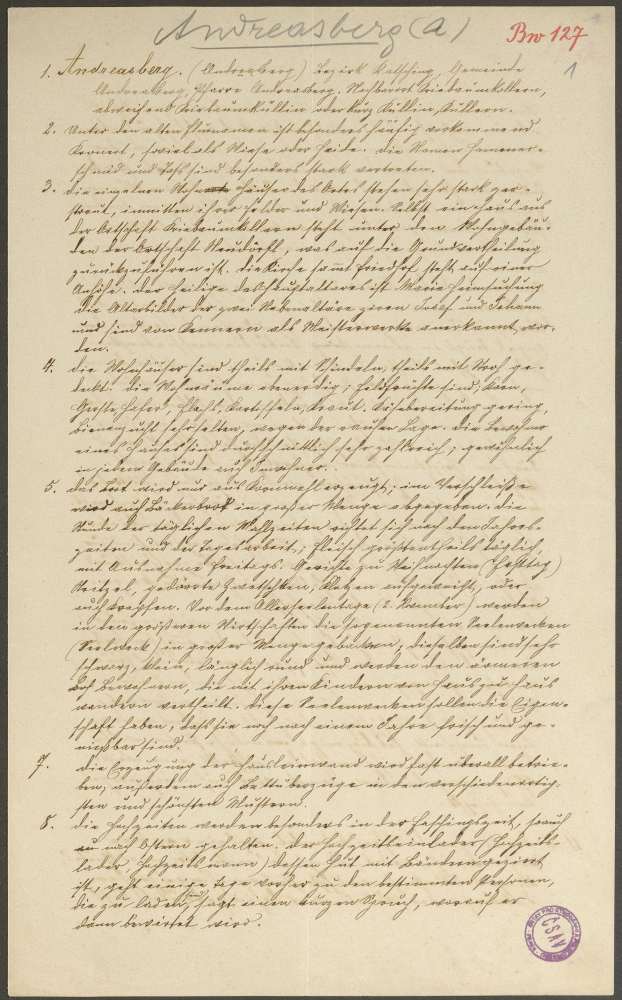 Andreasberg (a)
Bw 127
1
1. Andreasberg. (Andreasberg) Bezirk Kalsching, Gemeinde
Andreasberg, Pfarre Andreasberg, Nachbarort Kriebaumkollern,
abweichend Kriebaumküllin oder kurz Küllin, Küllern.
2. Unter den alten Flurnamen ist besonders häufig vorkommend
soviel als Wiese oder Heide. Die Namen Hammer-
schmid und sind besonders stark vertreten.
3. Die einzelnen Wohnhäuser des Ortes stehen sehr stark zer-
streut, inmitten ihrer Felder und Wiesen. Selbst ein Haus aus
der Ortschaft Kriebaumkollern steht unter den Wohngebäu-
den der Ortschaft Neudörfl, was auf die Grundvertheilung
zurückzuführen ist. Die Kirche sammt Friedhof steht auf einer
Anhöhe. Der Heilige des Hauptaltares ist Maria Heimsuchung
die Altarbilder der zwei Nebenaltäre zieren Josef und Johann
und sind von Kennern als Meisterwerke anerkannt wor-
den.
4. Die Wohnhäuser sind theils mit Schindeln, theils mit Stroh ge-
deckt. Die Wohnräume ebenerdig; Feldfrüchte sind; Korn,
Gerste, Hafer, Flachs, Kartoffeln, Kraut. Käsebereitung gering,
Bienenzucht sehr selten, wegen der rauhen Lage. Die Bewohner
eines Hauses sind durchschnittlich sehr zahlreich; gewöhnlich
in jedem Gebäude auch Inwohner.
5. Das Brot wird nur aus Kornmehl erzeugt; im Verschleiße
wird auch Bäckerbrot in großer Menge abgegeben. Die
Stunde der täglichen Mahlzeiten richtet sich nach den Jahres-
zeiten und der Tagesarbeit; Fleisch größtentheils täglich,
mit Ausnahme Freitags. Gerichte zu Weihnachten (Festtag)
Stritzel, gedörrte Zwetschken, Klezen oder
auch Krapfen. Vor dem Allerseelentage (2. November) werden
in den größeren Wirtschaften die sogenannten Seelenwecken
(Seelweck) in großer Menge gebacken; dieselben sind sehr
schwarz, klein, länglich rund und werden den ärmeren
Bewohnern, die mit ihren Kindern von Haus zu Haus
wandern vertheilt. Diese Seelenwecken sollen die Eigen-
schaft haben, dass sie noch nach einem Jahre frisch und ge-
nießbar sind.
7. Die Erzeugung der Hausleinwand wird fast überall betrie-
ben, außerdem auch Bettüberzüge in den verschiedenartig-
sten und schönsten Mustern.
8. Die Hochzeiten werden besonders in der Faschingszeit, sowie
nach Ostern gehalten. Der Hochzeitseinlader (Hochzeits-
lader Hochzeitsmann) dessen Hut mit Bändern geziert
ist, geht einige Tage vorher zu den bestimmten Personen,
die zu laden, sagt einen kurzen Spruch, worauf er
dann bewirtet wird.
ČSAV